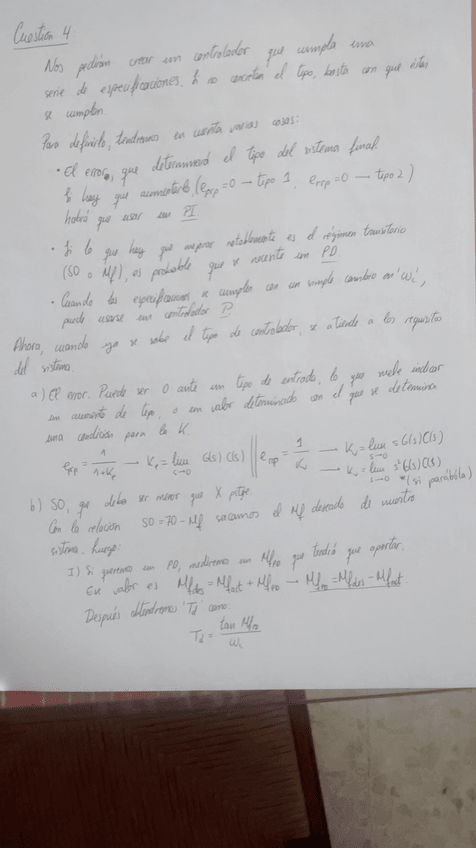 Cuestión 4:
Nos pedirán crear un controlador que cumpla una
serie de especificaciones. Si no concretan el tipo, basta con que éstas
se cumplan.
Para definirlo, tendremos en cuenta varias cosas:
• El error, que determinará el tipo del sistema final.
Si hay que aumentarlo (e_rpp=0 → tipo 1, e_rpp=0 → tipo 2)
habrá que usar un PI
• Si lo que hay que mejorar notablemente es el régimen transitorio
(SO o Mf), es probable que se necesite un PD
• Cuando las especificaciones se cumplen con un simple cambio en 'ωc',
puede usarse un controlador P.
Ahora, cuando ya se sabe el tipo de controlador, se atiende a los requisitos
del sistema.
a) El error. Puede ser 0 ante un tipo de entrada, lo que suele indicar
un aumento de tipo, o un valor determinado con el que se determina
una condición para la K.
e_rpp = 1/(1+Kp) → Kp = lim s→0 G(s)·C(s) || e_rpp = 1/Kv → Kv = lim s→0 s G(s)C(s)
→ Kv = lim s→0 s² G(s)C(s)
*(si parábola)
b) SO, que deba ser menor que X
Con la relación SO = 70 - Mf sacamos el Mf deseado de nuestro
sistema. Luego:
I) Si queremos un PD, mediremos un Mf_PD que tendrá que aportar.
Su valor es Mfdes = Mfact + Mf_PD → Mf_PD = Mfdes - Mfact
Después obtendremos 'Td' como:
Td = tan Mf_PD / ωc